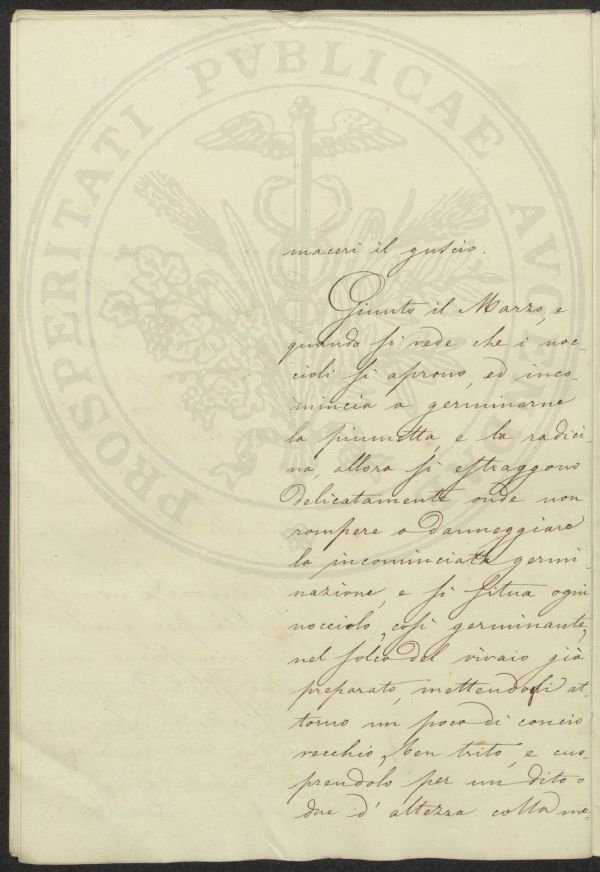 maceri il guscio.
Giunto il Marzo, e
quando si vede che i noc-
cioli si aprono, ed inco-
mincia a germinarne
la piumetta, e la radici-
na, allora si estraggono
delicatamente onde non
rompere o danneggiare
la incominciata germi-
nazione, e si situa ogni
nocciolo, così germinante,
nel solco del vivaio già
preparato, mettendogli at-
torno un poco di concio
vecchio, ben trito, e cuo-
prendolo per un dito o
due d'altezza colla me-